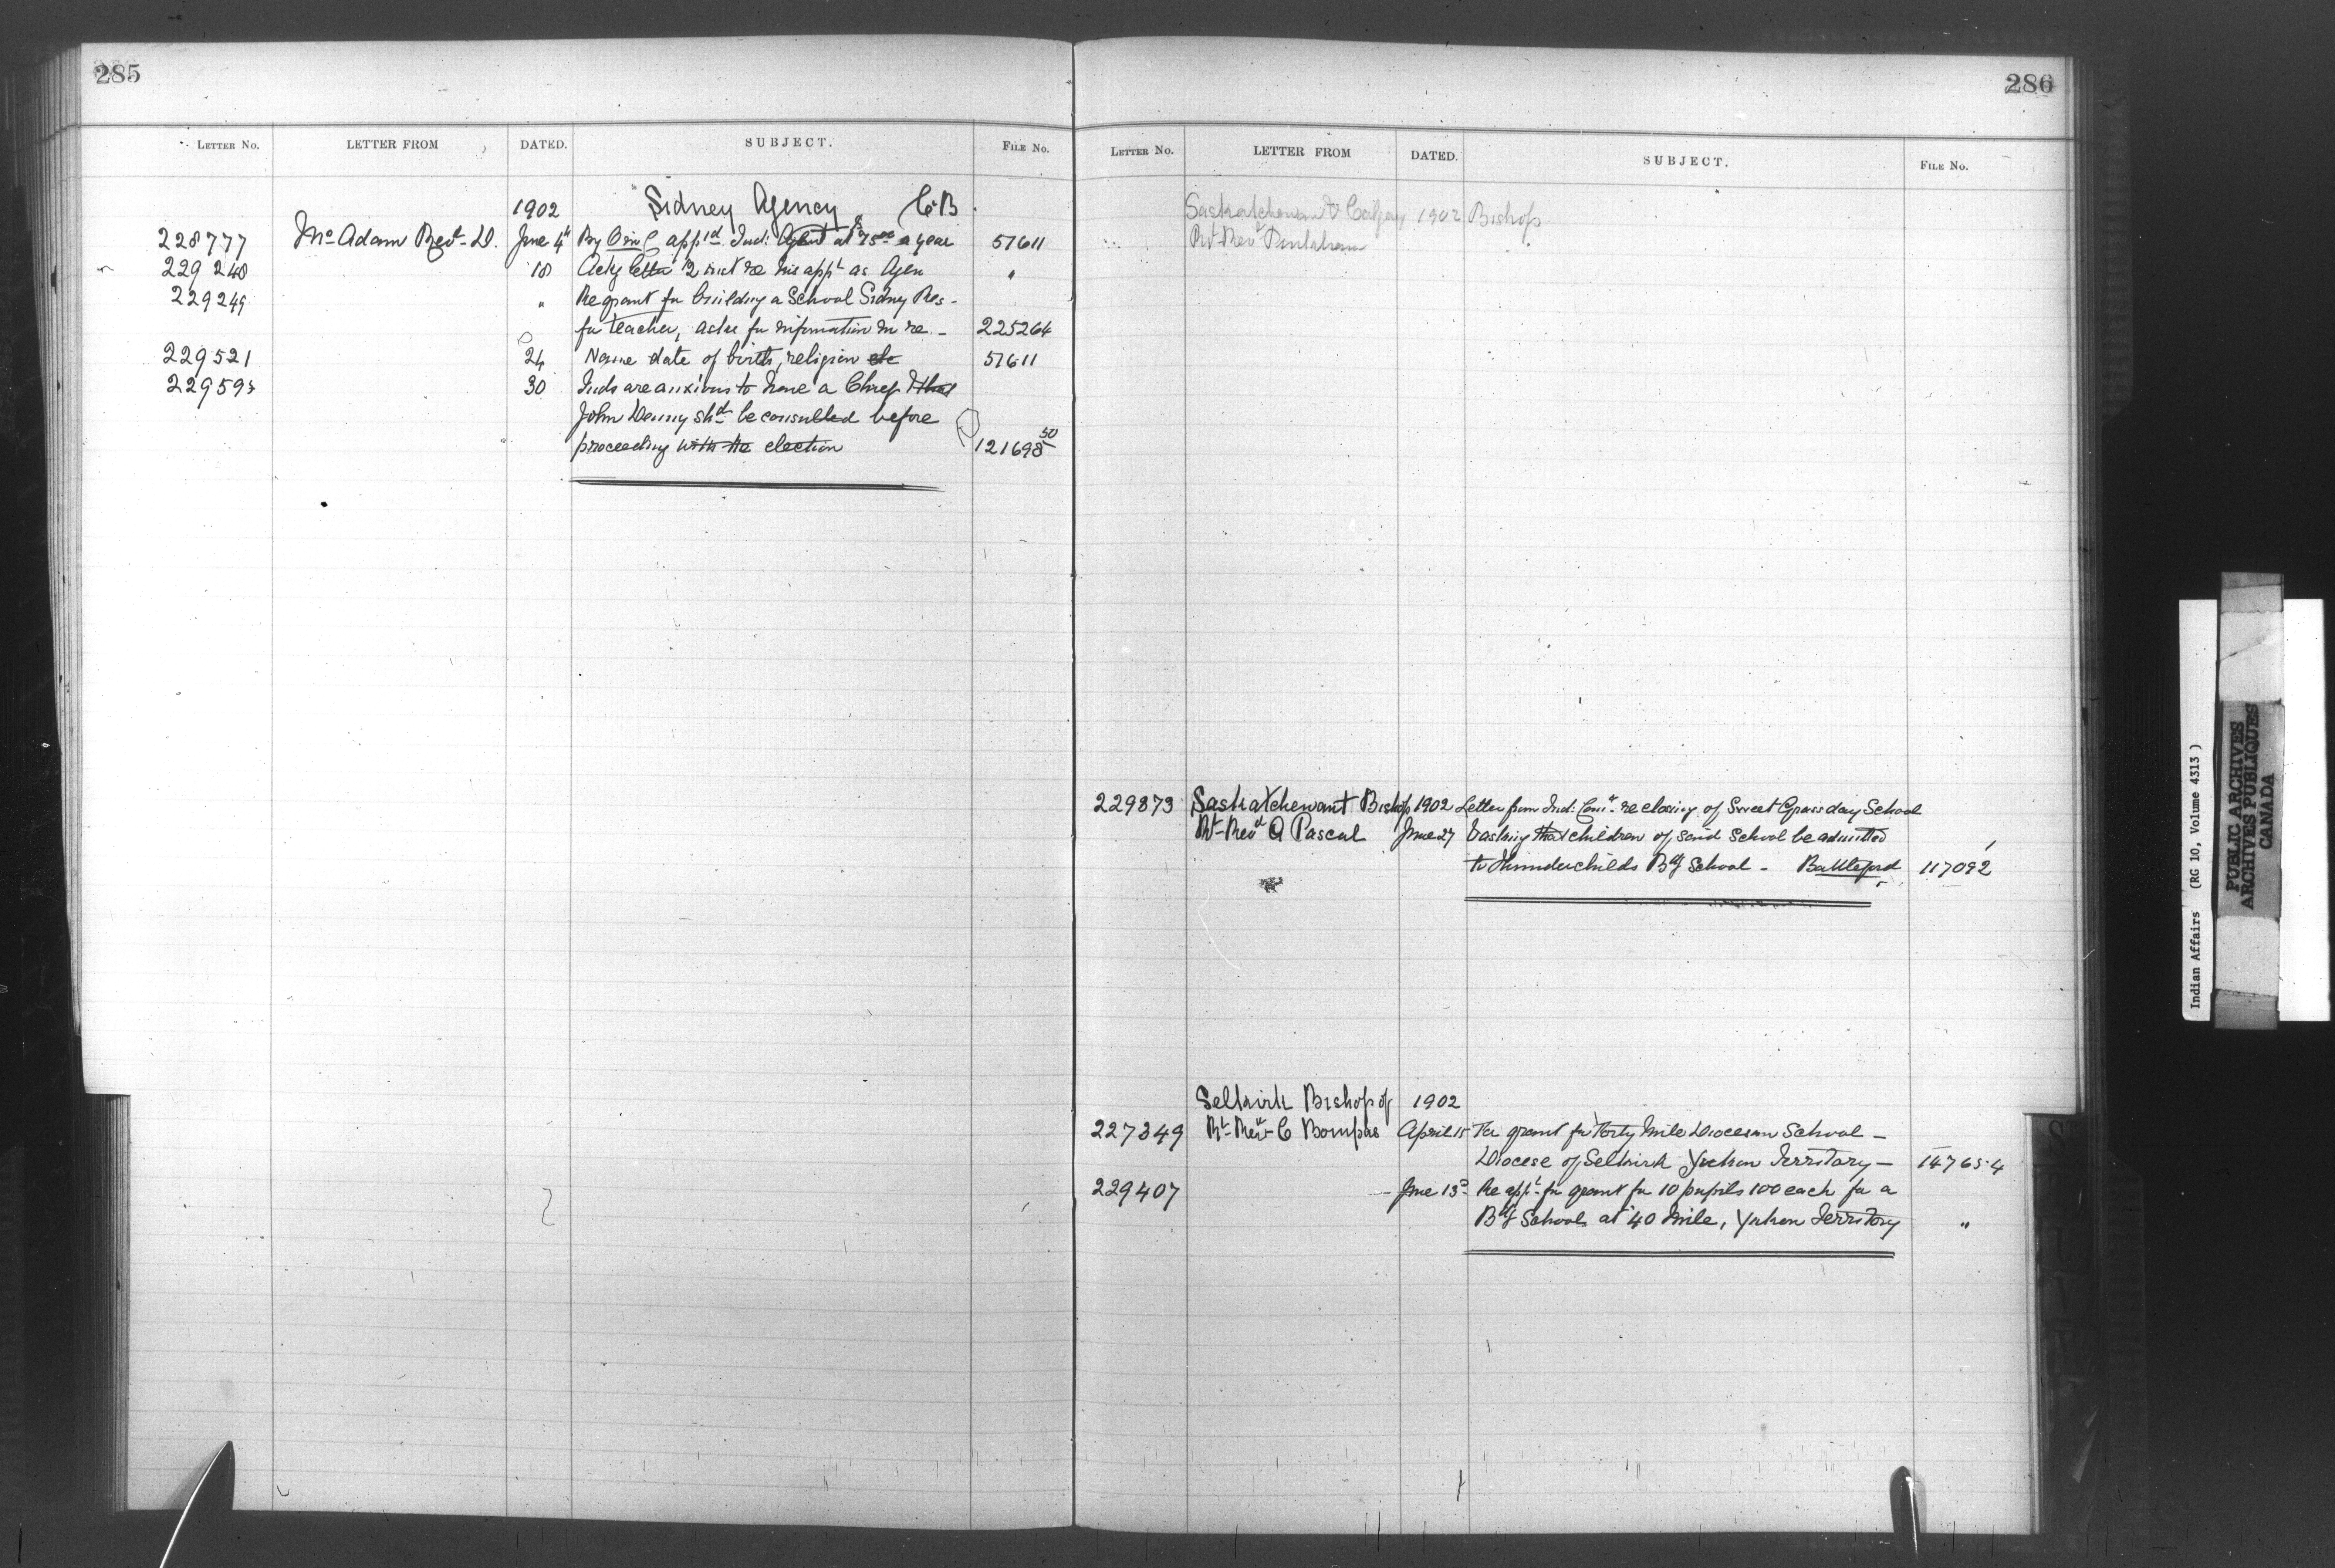 285
LETTER No. LETTER FROM DATED. SUBJECT. FILE No.
1902 Sidney Agency C.B.
228777 McAdam Revd D. June 4th By O in C apptd Indn Agent at $75.00 a year 57611
229240 18 Ackg letter 12 inst re his appt as Agen "
229249 " Re grant for building a School Sidney Res-
for teacher, asks for information in re - 225264
229521 24 Name date of birth, religion etc 57611
22959 30 Inds are anxious to have a Chief & that
John Denny shd be consulted before
proceeding with the election 121698 50
286
LETTER No. LETTER FROM DATED. SUBJECT. FILE No.
Saskatchewan & Calgary 1902 Bishop
Rt Revd Pinkham
229873 Saskatchewan Bishop 1902 Letter from Ind: Comr re closing of Sweet Grass day School
Rt Revd A Pascal June 27 & asking that children of said School be admitted
to Thunderchilds Bdg School - Battleford 117092
Selkirk Bishop of 1902
227349 Rt Revd C Bompas April 15 Re grant for Forty Mile Diocesan School -
Diocese of Selkirk Yukon Territory - 147654
229407 June 13 Re appt for grant for 10 pupils 100 each for a
Bdg School at 40 Mile, Yukon Territory "
Indian Affairs (RG 10, Volume 4313)
PUBLIC ARCHIVES
ARCHIVES PUBLIQUES
CANADA